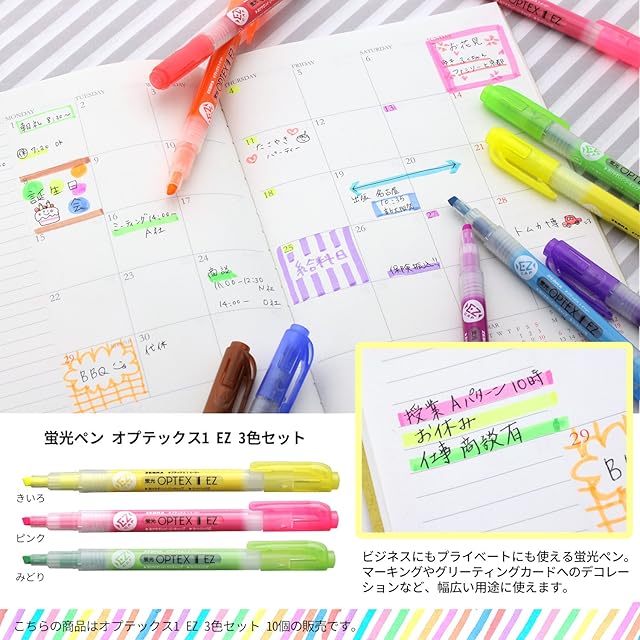 MONDAY
TUESDAY
THURSDAY
FRIDAY
SATURDAY
お花見
朝礼 8:30〜
7:30 OK
たこやき
パーティー
誕生日
会
出張 名古屋
10:35
ミーティング14:00〜
A社
給料日
商談
11:00-12:30
N社
14:00- O社
保険振込!!
トムカ博
BBQ
代休
OPTEX 1 EZ
授業 Aパターン10時
お休み
仕事 商談有
29
蛍光ペン オプテックス1 EZ 3色セット
きいろ
蛍光 OPTEX 1 EZ
ピンク
蛍光 OPTEX 1 EZ
みどり
蛍光 OPTEX 1 EZ
ビジネスにもプライベートにも使える蛍光ペン。
マーキングやグリーティングカードへのデコレー
ションなど、幅広い用途に使えます。
こちらの商品はオプテックス1 EZ 3色セット 10個の販売です。